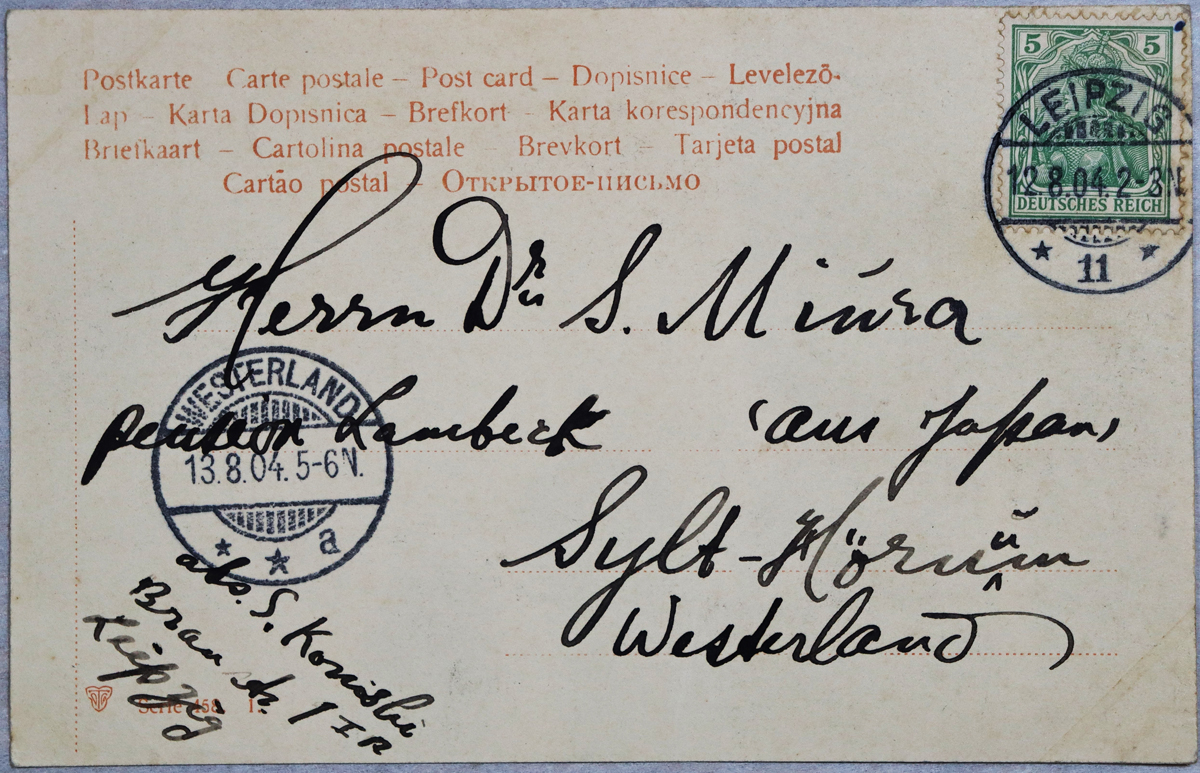 Postkarte Carte postale – Post card – Dopisnice – Levelezõ-
Lap – Karta Dopisnica – Brefkort – Karta korespondencyjna
Briefkaart – Cartolina postale – Brevkort – Tarjeta postal
Cartão postal – Открытое-письмо
5 5
DEUTSCHES REICH
LEIPZIG
12.8.04. 2-3N.
11
Herrn Dr S. Miúra
pension Lambeck (aus Japan)
WESTERLAND
13.8.04. 5-6N.
a
Sylt-Hörnum
Westerland
abs. S. Konishi
Leipzig
Serie 458